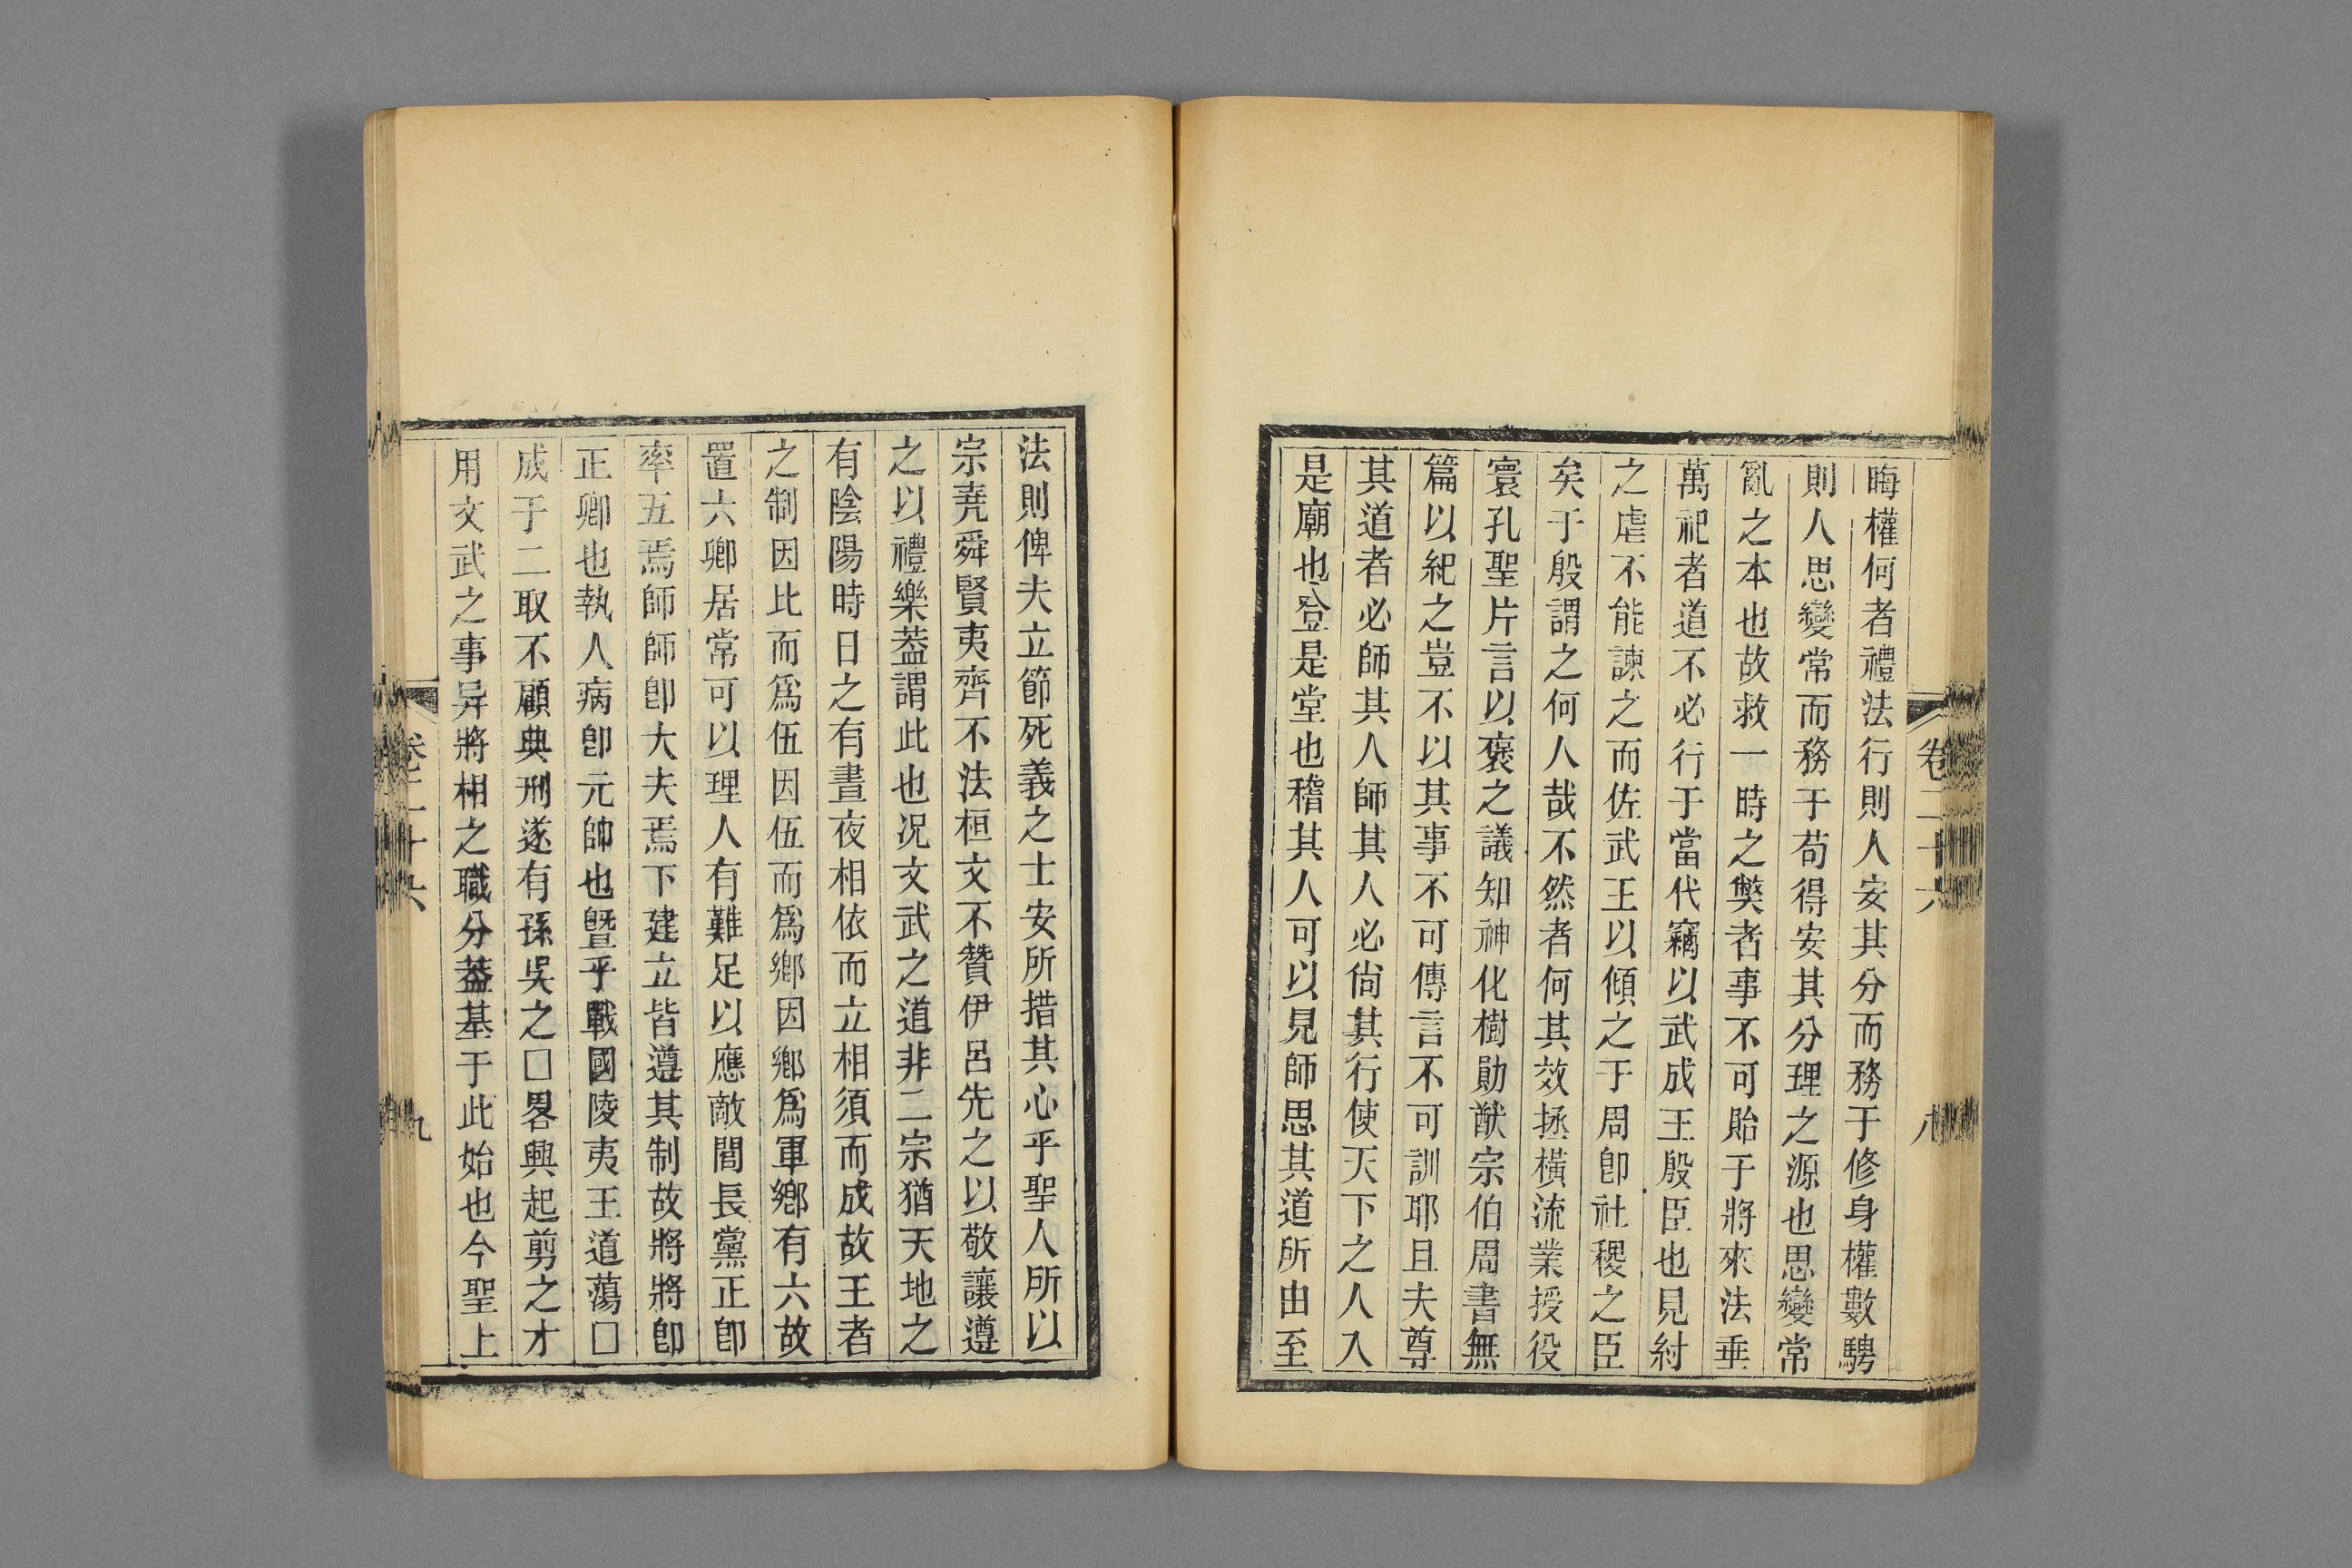 晦權何者禮法行則人安其分而務于修身權數騁
則人思變常而務于苟得安其分理之源也思變常
亂之本也故救一時之獘者事不可貽于將來法垂
萬祀者道不必行于當代竊以武成王殷臣也見紂
之虐不能諫之而佐武王以傾之于周卽社稷之臣
矣于殷謂之何人哉不然者何其效拯橫流業授役
寰孔聖片言以褒之議知神化樹勛猷宗伯周書無
篇以紀之豈不以其事不可傳言不可訓耶且夫尊
其道者必師其人師其人必尙其行使天下之人入
是廟也登是堂也稽其人可以見師思其道所由至
卷二十六
八
法則俾夫立節死義之士安所措其心乎聖人所以
宗堯舜賢夷齊不法桓文不贊伊呂先之以敬讓遵
之以禮樂葢謂此也况文武之道非二宗猶天地之
有陰陽時日之有晝夜相依而立相須而成故王者
之制因比而爲伍因伍而爲鄉因鄉爲軍鄉有六故
置六卿居常可以理人有難足以應敵閭長黨正卽
率五焉師師卽大夫焉下建立皆遵其制故將將卽
正卿也執人病卽元帥也曁乎戰國陵夷王道蕩□
成于二取不顧典刑遂有孫吳之□畧興起剪之才
用文武之事异將相之職分葢基于此始也今聖上
卷二十六
九